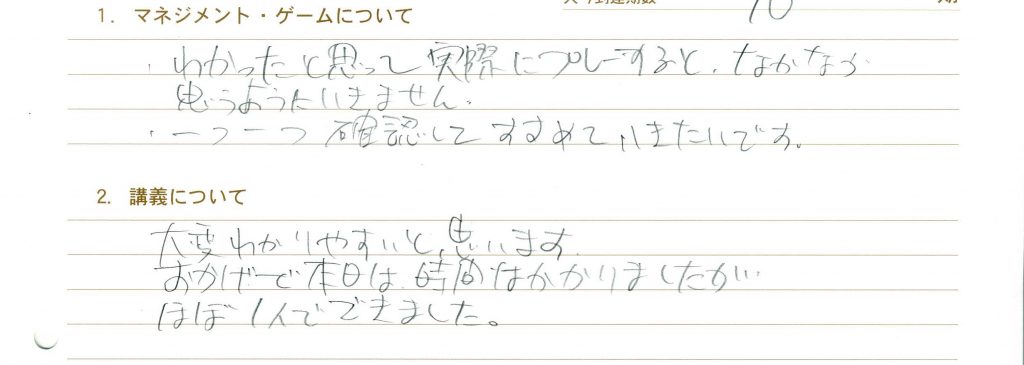 10
1. マネジメント・ゲームについて
・わかったと思って実際にプレーすると、なかなか
思うようにいきません。
・一つ一つ確認してすすめていきたいです。
2. 講義について
大変わかりやすいと思います。
おかげで本日は時間はかかりましたが
ほぼ1人でできました。